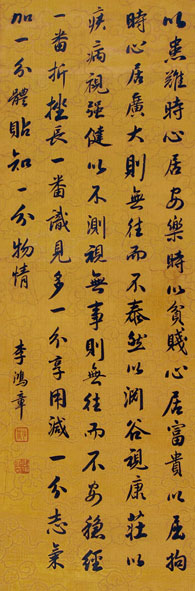 以患難時心居安樂時以貧賤心居富貴以屈拘
時心居廣大則無往而不泰然以淵谷視康莊以
疾病視强健以不測視無事則無往而不安穩經
一番折挫長一番識見多一分享用減一分志氣
加一分體貼知一分物情
李鴻章